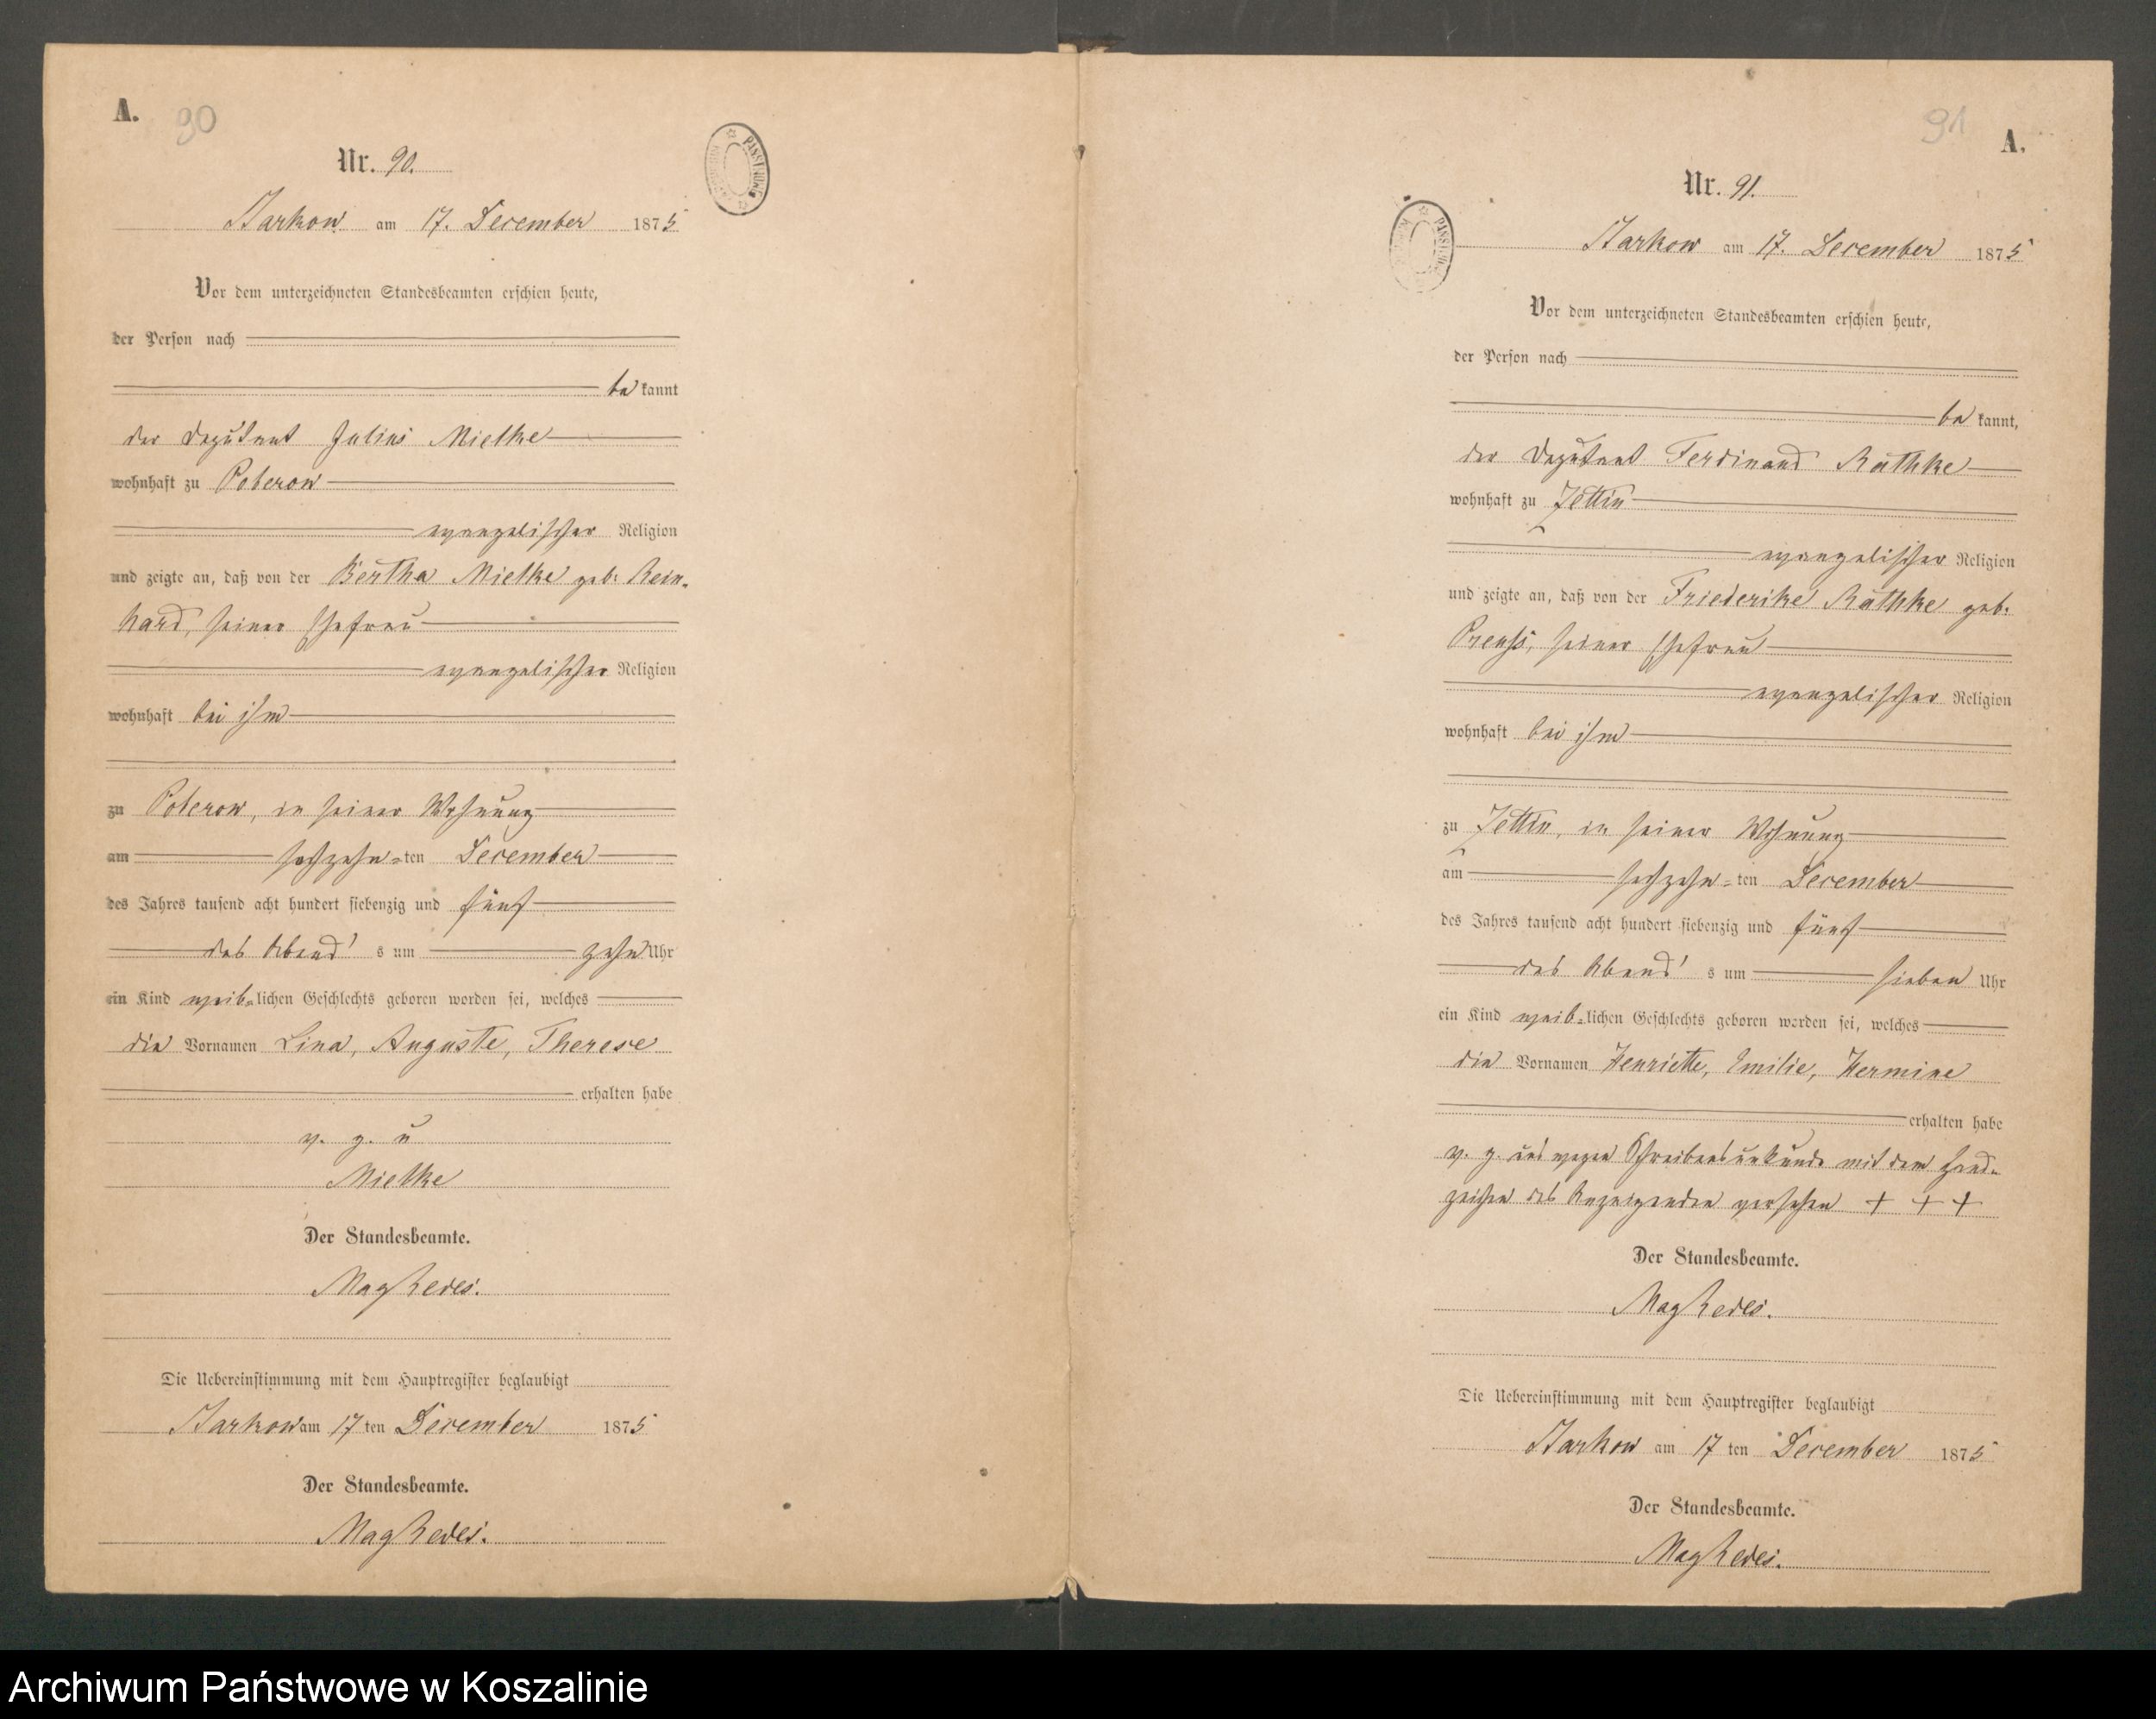 A.
90
Nr. 90.
Starkow am 17. December 1875
Vor dem unterzeichneten Standesbeamten erschien heute,
der Person nach
be kannt
der Deputant Julius Mielke
wohnhaft zu Poberow
evangelischer Religion
und zeigte an, daß von der Bertha Mielke geb. Rein-
hard, seiner Ehefrau
evangelischer Religion
wohnhaft bei ihm
zu Poberow, in seiner Wohnung
am sechzehn-ten December
des Jahres tausend acht hundert siebenzig und fünf
des Abend's um zehn Uhr
ein Kind weib-lichen Geschlechts geboren worden sei, welches
die Vornamen Lina, Auguste, Therese
erhalten habe
v. g. u
Mielke
Der Standesbeamte.
Die Uebereinstimmung mit dem Hauptregister beglaubigt
Starkow am 17 ten December 1875
Der Standesbeamte.
91
A.
Nr. 91.
Starkow am 17. December 1875
Vor dem unterzeichneten Standesbeamten erschien heute,
der Person nach
be kannt,
der Deputant Ferdinand Rathke
wohnhaft zu Zettin
evangelischer Religion
und zeigte an, daß von der Friederike Rathke geb.
Preuß, seiner Ehefrau
evangelischer Religion
wohnhaft bei ihm
zu Zettin, in seiner Wohnung
am sechzehn-ten December
des Jahres tausend acht hundert siebenzig und fünf
des Abend's um sieben Uhr
ein Kind weib-lichen Geschlechts geboren worden sei, welches
die Vornamen Henriette, Emilie, Hermine
erhalten habe
v. g. und wegen Schreibensunkunde mit dem Hand-
zeichen des Anzeigenden versehen + + +
Der Standesbeamte.
Die Uebereinstimmung mit dem Hauptregister beglaubigt
Starkow am 17 ten December 1875
Der Standesbeamte.
Archiwum Państwowe w Koszalinie